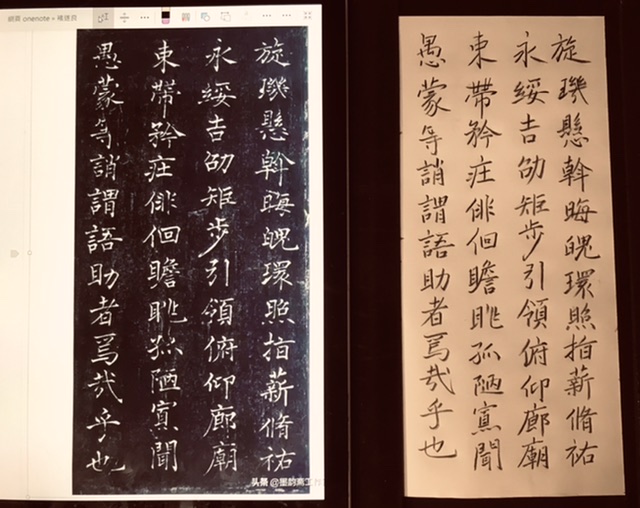 onenote » 褚遂良
旋璣懸幹晦魄環照指薪脩祐
永綏吉劭矩步引領俯仰廊廟
束帶矜莊俳佪瞻眺孤陋寡聞
愚蒙等誚謂語助者焉哉乎也
头条 @墨韵高工
旋璣懸幹晦魄環照指薪脩祐
永綏吉劭矩步引領俯仰廊廟
束帶矜莊俳佪瞻眺孤陋寡聞
愚蒙等誚謂語助者焉哉乎也